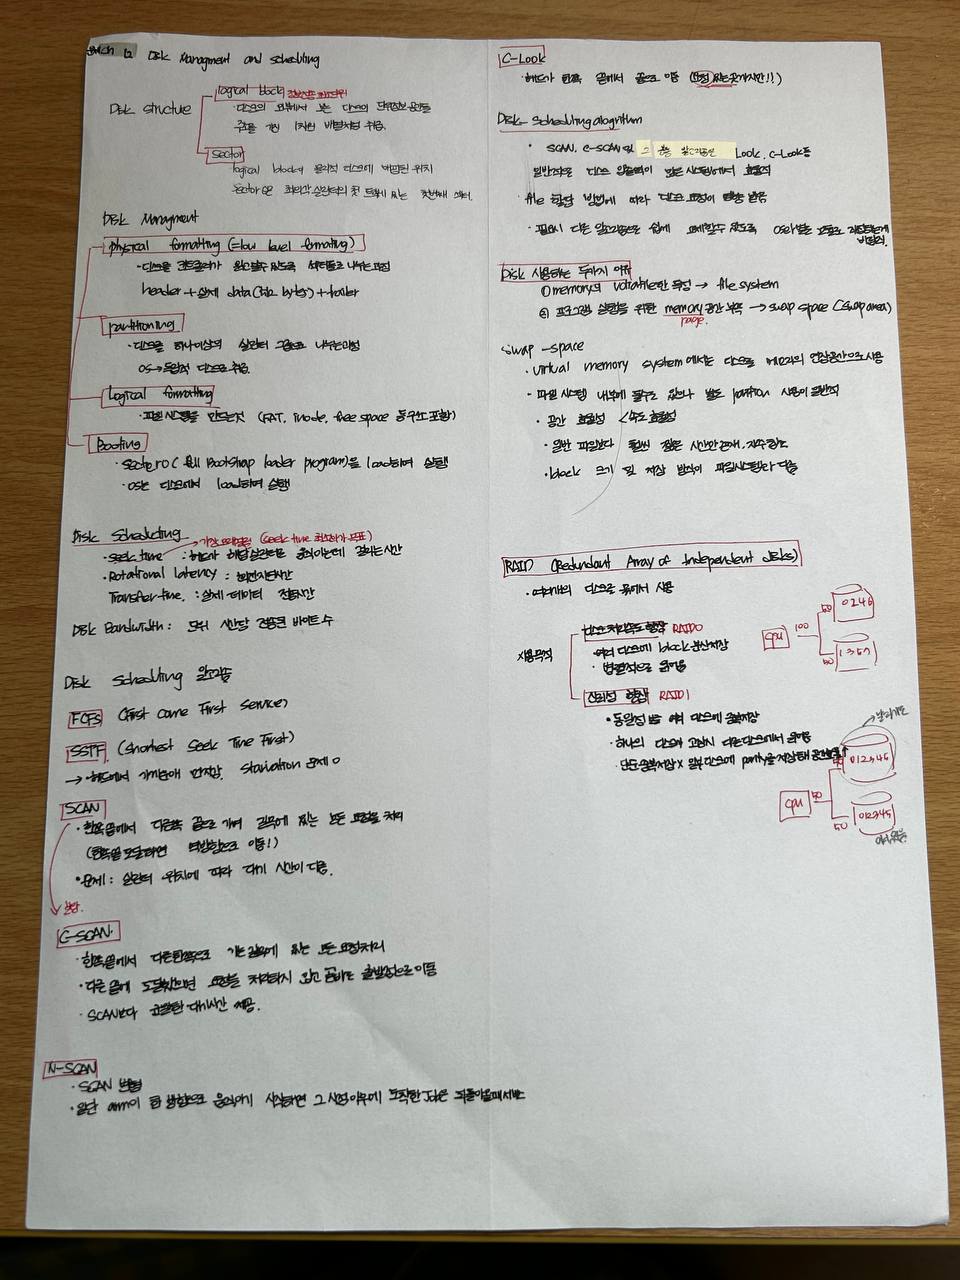 ch 12 Disk Managment and scheduling
Disk structure
logical block 정보전송 최소단위
· 디스크의 외부에서 보는 디스크의 단위정보 공간들
주소를 가진 1차원 배열처럼 취급.
Sector
logical block이 물리적 디스크에 매핑된 위치
Sector 0은 최외각 실린더의 첫 트랙에 있는 첫번째 섹터.
Disk Managment
physical formatting (=low level formating)
· 디스크를 컨트롤러가 읽고 쓸 수 있도록 섹터들로 나누는 과정
header + 실제 data(512 bytes) + trailer
partitioning
· 디스크를 하나이상의 실린더 그룹으로 나누는과정
OS → 독립적 디스크로 취급.
Logical formatting
· 파일시스템을 만드는것 (FAT, inode, free space 등 구조 포함)
Booting
· sector 0 ( full Bootstrap loader program)을 load하여 실행
· OS는 디스크에서 load하여 실행
Disk Scheduling
가장 (seek time 최소화가 목표)
· seek time : 헤드가 해당 실린더로 움직이는데 걸리는시간
· Rotational latency : 회전지연시간
Transfer time. : 실제 데이터 전송시간
Disk Bandwidth : 단위 시간당 전송된 바이트 수
Disk Scheduling 알고리즘
FCFS (First Come First Service)
SSTF (Shortest Seek Time First)
→ 헤드에서 가까운애 먼저감. starvation 문제 o
SCAN
· 한쪽 끝에서 다른쪽 끝으로 가며 길목에 있는 모든 요청을 처리
(한쪽끝 도달하면 역방향으로 이동!)
· 문제 : 실린더 위치에 따라 대기 시간이 다름.
C-SCAN
· 한쪽끝에서 다른한쪽으로 가는길목에 있는 모든 요청처리
· 다른 끝에 도달했으면 요청을 처리하지 않고 곧바로 출발점으로 이동
· SCAN보다 균일한 대기시간 제공.
N-SCAN
· SCAN 변형
· 일단 arm이 한 방향으로 움직이기 시작하면 그 시점 이후에 도착한 Job은 되돌아올때 서비스
C-Look
· 헤드가 한쪽 끝에서 끝으로 이동 (요청 있는곳까지만!!)
Disk-Scheduling alogrithm
· SCAN, C-SCAN 및 그 응용 알고리즘인 Look, C-Look등
일반적으로 디스크 입출력이 많은 시스템에서 효율적
· file 할당 방법에 따라 디스크 요청이 영향 받음
· 필요시 다른 알고리즘으로 쉽게 교체할수 있도록 OS와 별도 모듈로 작성하는게 바람직.
Disk 사용하는 두가지 이유
① memory의 volatile한 특성 → file system
② 프로그램 실행을 위한 memory 공간 부족 → swap space (swap area)
page.
Swap-space
· virtual memory system에서는 디스크를 메모리의 연장공간으로 사용
· 파일 시스템 내부에 둘수도 있으나 별도 partition 사용이 일반적
· 공간 효율성 < 속도 효율성
· 일반 파일보다 훨씬 짧은 시간만 존재, 자주 참조
· block 크기 및 저장 방식이 파일시스템과 다름
RAID (Redundant Array of Independent Disks)
· 여러개의 디스크를 묶어서 사용
사용목적
디스크 처리속도 향상 RAID0
· 여러 디스크에 block 분산저장
· 병렬적으로 읽어옴
신뢰성 향상 RAID1
· 동일정보를 여러 디스크에 중복저장
· 하나의 디스크가 고장시 다른디스크에서 읽어옴
· 단순중복저장 x 일부 디스크에 parity를 저장해 공간효율↑
CPU 100 50 0246
50 1357
CPU 50 012345
50 012345